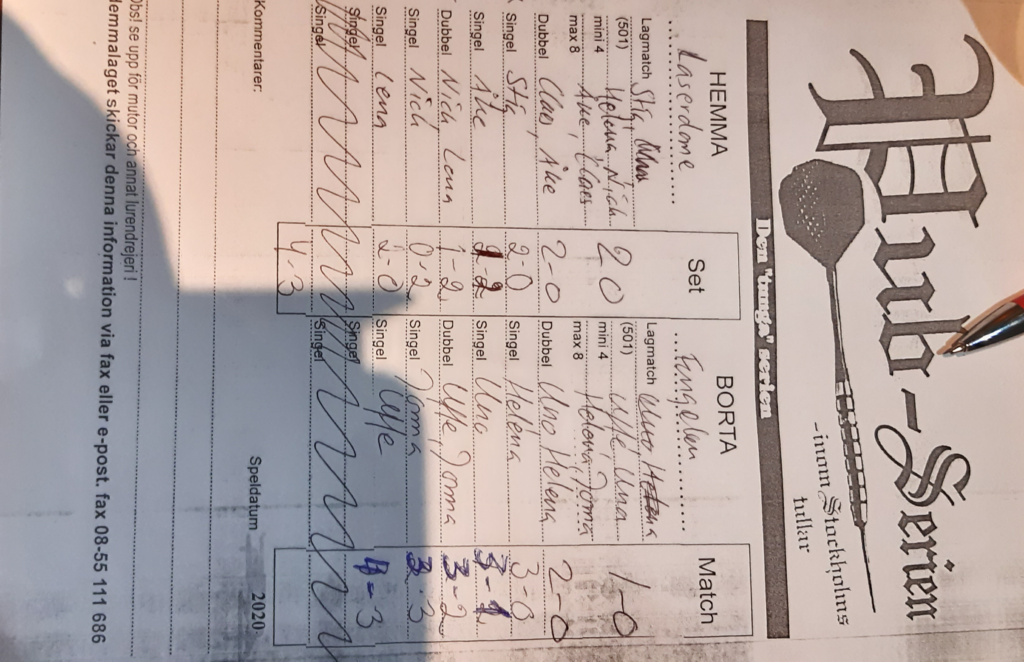 Pub-Serien
-inom Stockholms
tullar
Den 'tunga' serien
HEMMA Set BORTA Match
Laserdome
Lagmatch Stig, Lagmatch Uno,
(501) Helena, Nick 2 0 (501) Uffe, 1-0
mini 4 Åke, Claes mini 4 Helena, Jorma
max 8 max 8
Dubbel Claes, Åke 2-0 Dubbel Uno, Helena 2-0
Singel Stig 2-0 Singel Helena 3-0
Singel Åke 1-2 Singel Uno 3-1
Dubbel Nick, Lena 1-2 Dubbel Uffe, Jorma 3-2
Singel Nick 0-2 Singel Jorma 3-3
Singel Lena 2-0 Singel Uffe 4-3
Singel Singel
Singel Singel
4-3
Kommentarer: Speldatum 2020
Obs! se upp för mutor och annat lurendrejeri !
Hemmalaget skickar denna information via fax eller e-post. fax 08-55 111 686